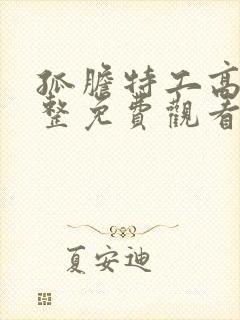 孤膽特工高
整免費觀看
夏安迪